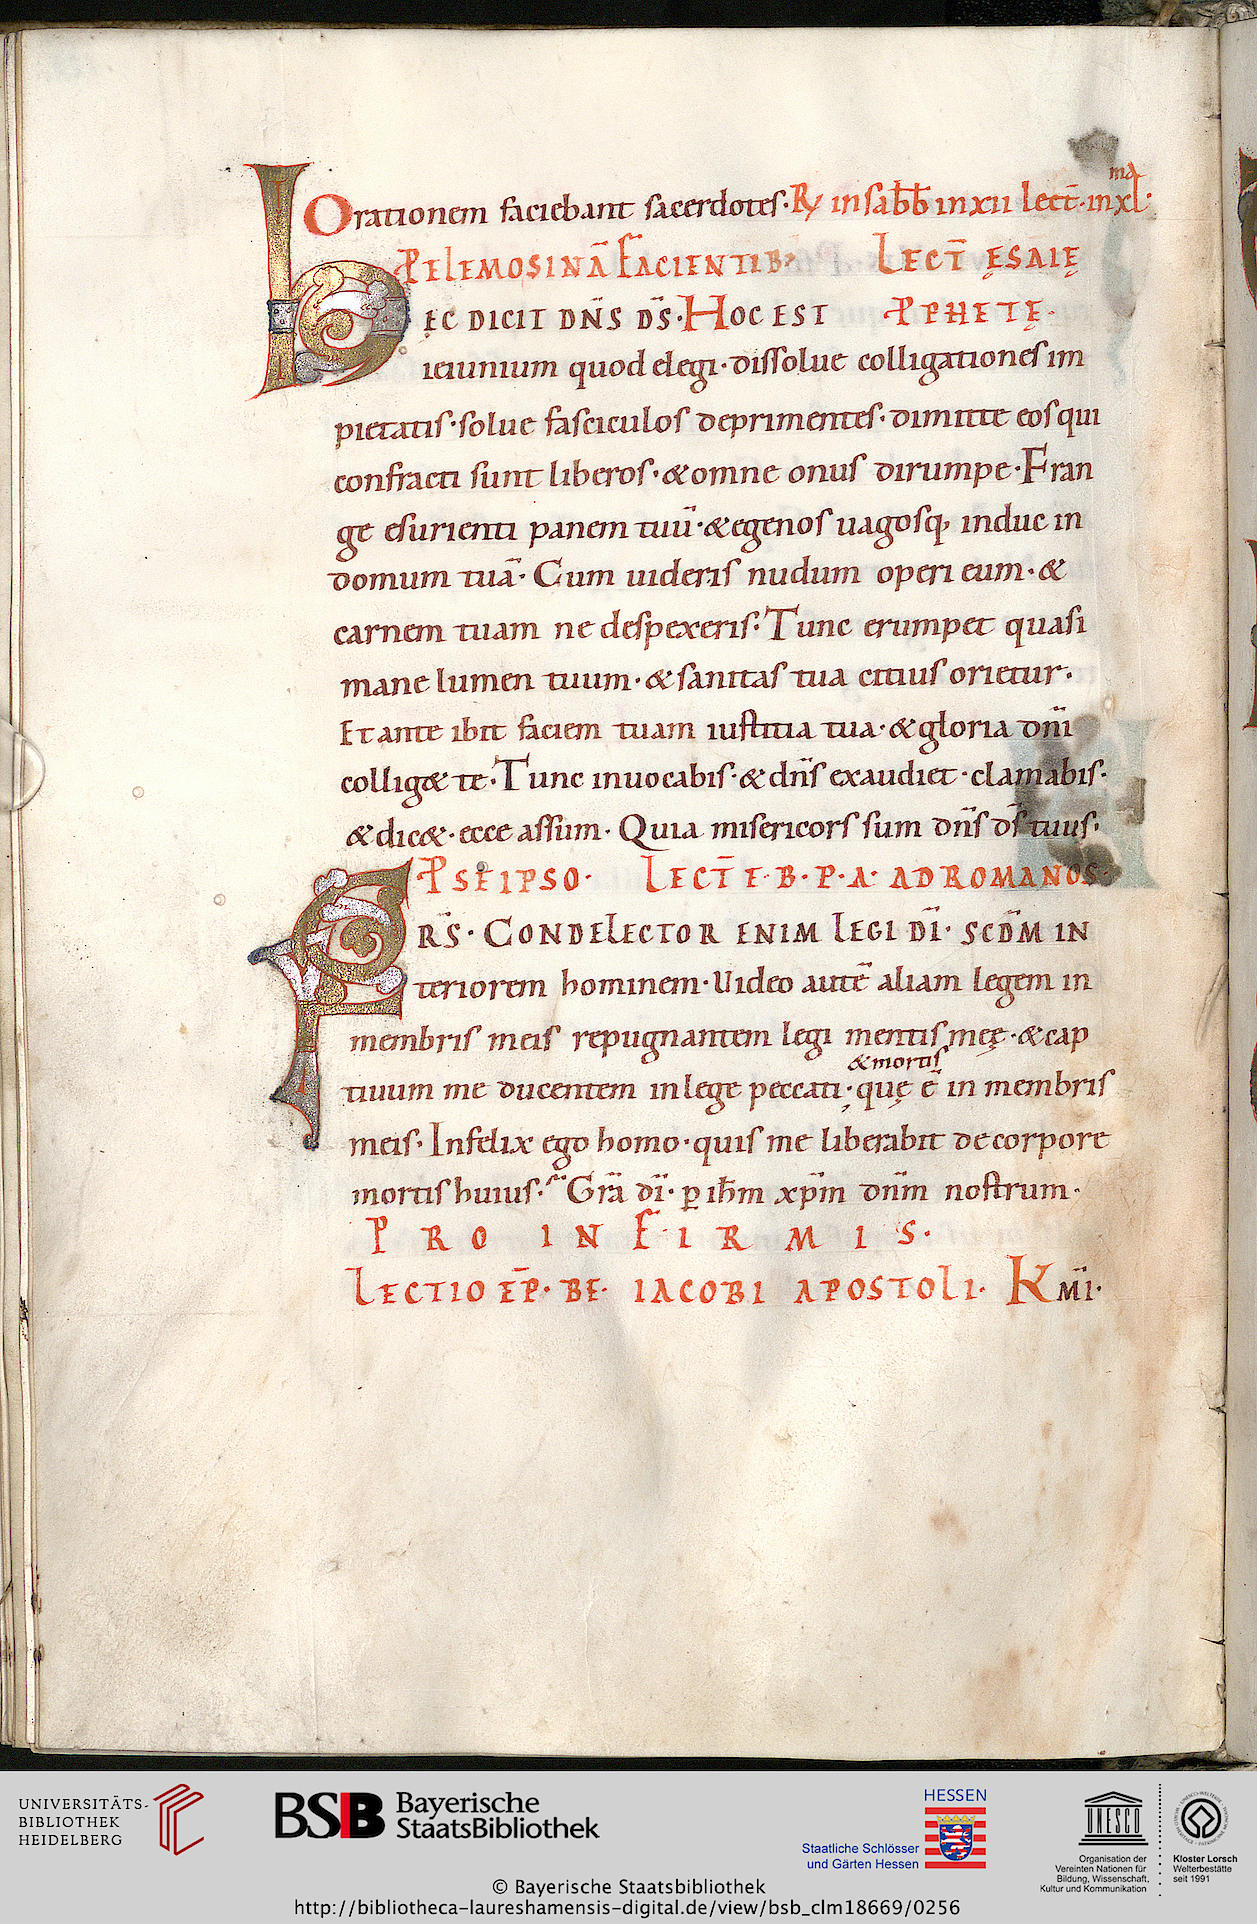 Orationem faciebant sacerdotes· R/ in sabb̄ in xii lect̄· in xl ma·
P ELEMOSINĀ FACIENTIB; LECT̄ ĘSAIĘ
HĘC DICIT DN̄S DS̄· HOC EST PPHETĘ·
ieiunium quod elegi· dissolue colligationes im
pietatis· solue fasciculos deprimentes· dimitte eos qui
confracti sunt liberos· & omne onus dirumpe· Fran
ge esurienti panem tuū· & egenos uagosq; induc in
domum tuā· Cum uideris nudum operi eum· &
carnem tuam ne despexeris· Tunc erumpet quasi
mane lumen tuum· & sanitas tua citius orietur·
Et ante ibit faciem tuam iustitia tua· & gloria dn̄i
collig& te· Tunc inuocabis· & dn̄s exaudiet· clamabis·
& dic&· ecce assum· Quia misericors sum dn̄s ds̄ tuus·
P SEIPSO· LECT̄ E· B· P· A· AD ROMANOS·
FRS̄· CONDELECTOR ENIM LEGI DĪ· SCDM̄ IN
teriorem hominem· Uideo autē aliam legem in
membris meis repugnantem legi mentis meę· & cap
& mortis
tiuum me ducentem in lege peccati· quę ē in membris
meis· Infelix ego homo· quis me liberabit de corpore
mortis huius· Grā dī· p ihm̄ xpm̄ dn̄m nostrum·
PRO INFIRMIS·
LECTIO EP̄· BE· IACOBI APOSTOLI· Km̄i·
UNIVERSITÄTS-
BIBLIOTHEK
HEIDELBERG
BSB Bayerische
StaatsBibliothek
HESSEN
Staatliche Schlösser
und Gärten Hessen
UNESCO
Organisation der
Vereinten Nationen für
Bildung, Wissenschaft,
Kultur und Kommunikation
Kloster Lorsch
Welterbestätte
seit 1991
© Bayerische Staatsbibliothek
http://bibliotheca-laureshamensis-digital.de/view/bsb_clm18669/0256